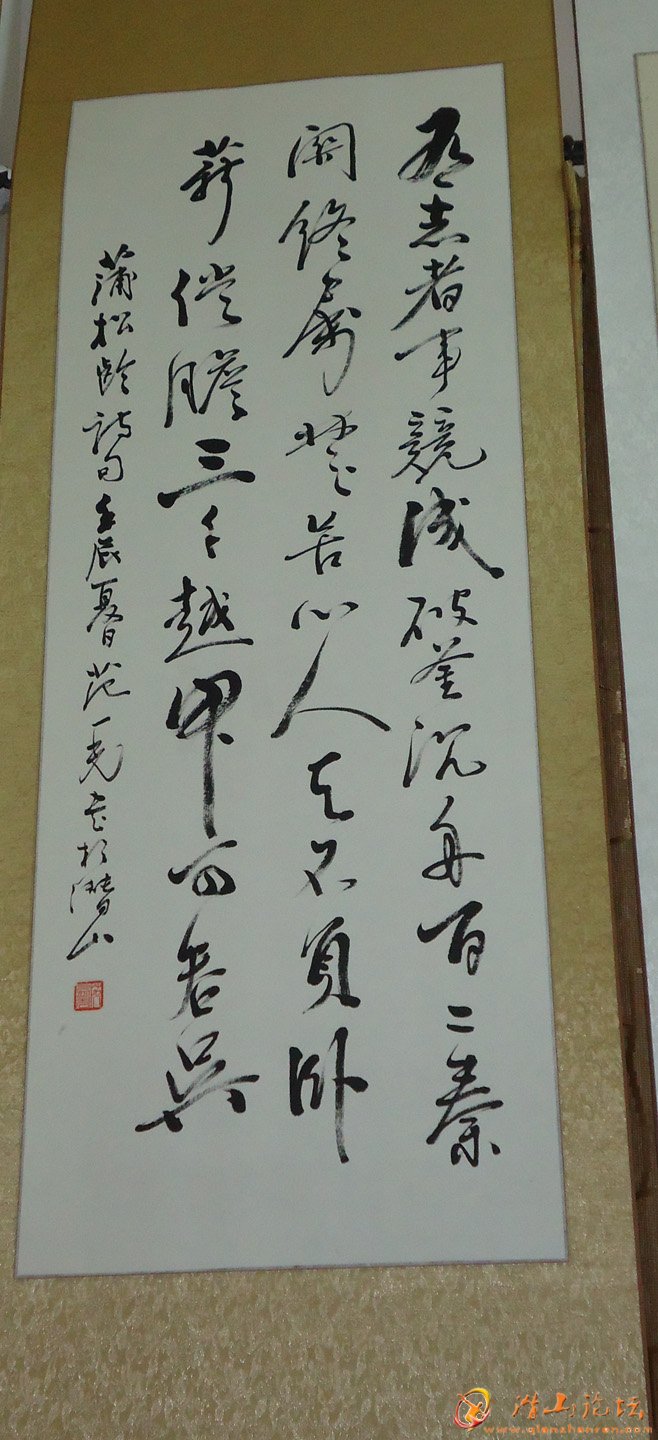 有志者事競成破釜沉舟百二秦
關終屬楚苦心人天不負卧
薪偿膽三千越甲可吞吴
蒲松齡詩句壬辰夏日范一書於潜山
潜山论坛
www.qianshanren.com